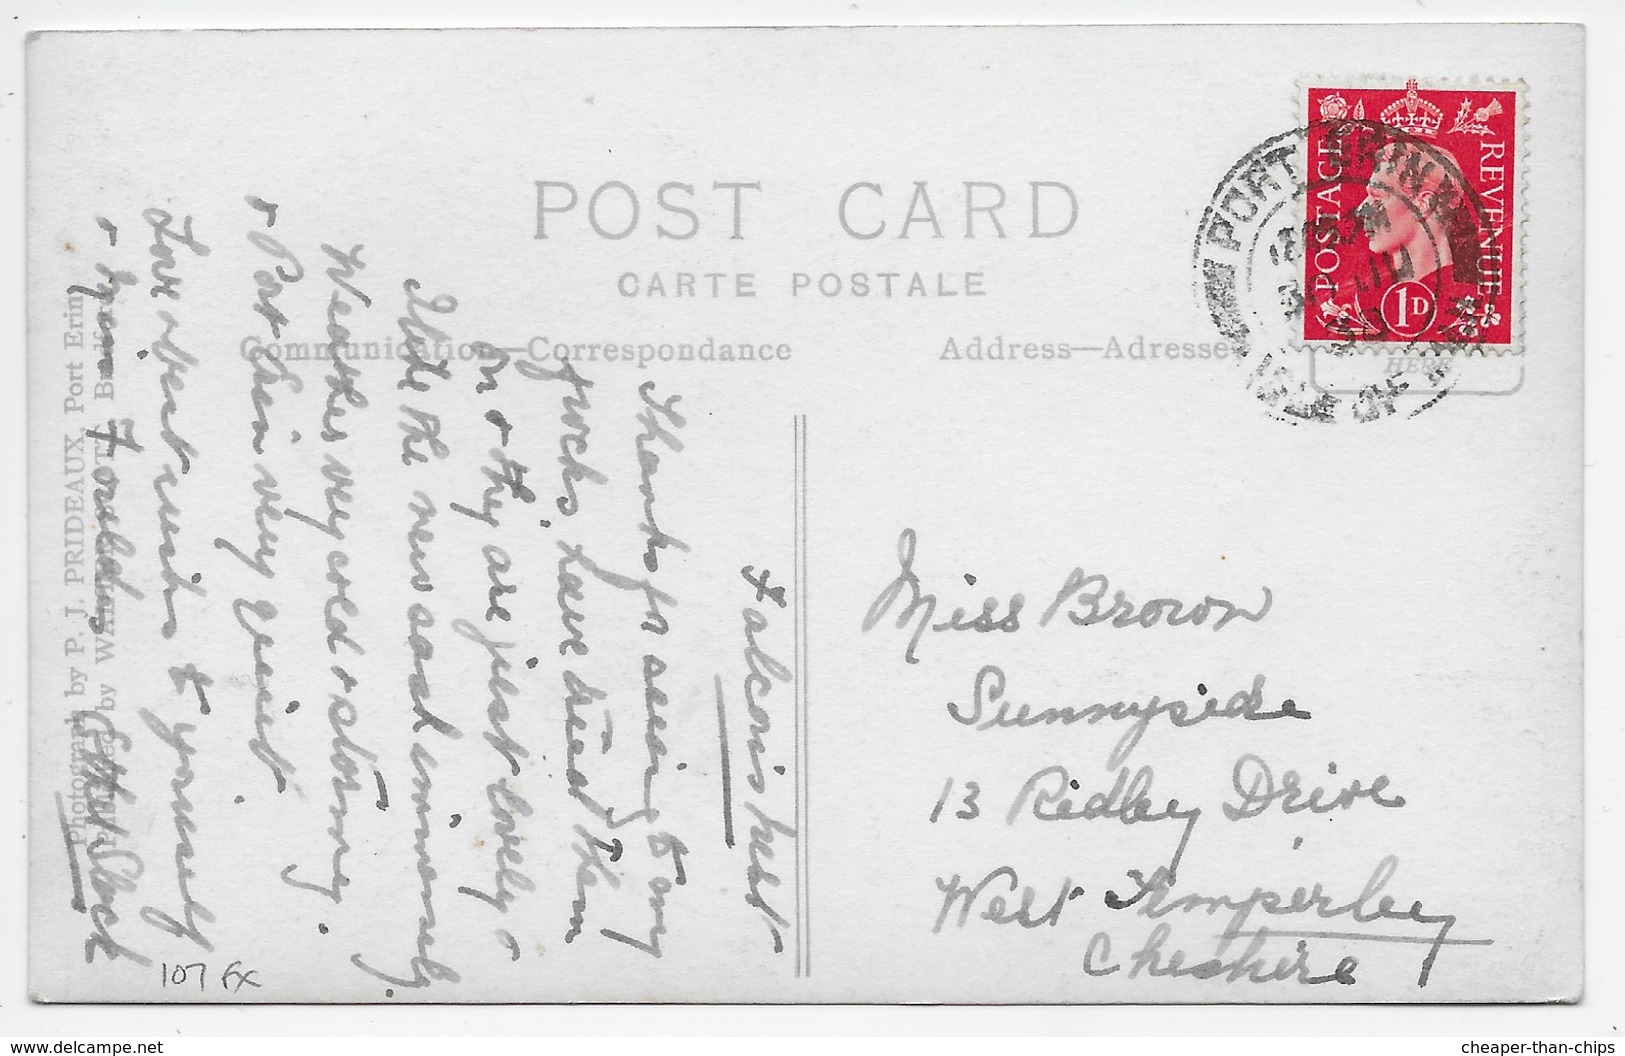 POST CARD
CARTE POSTALE
Communication—Correspondance
Address—Adresse
POSTAGE
REVENUE
1D
HERE
PORT ERIN
ISLE OF MAN
Falcon's Nest
Thanks for seeing to my
frocks, have tried them
on & they are just lovely &
I like the new coat immensely.
Weather very cold & stormy,
& Port Erin very quiet.
Love & best wishes to yourself
Ethel Slack
Miss Brown
Sunnyside
13 Ridley Drive
West Timperley
Cheshire
Photograph by P. J. PRIDEAUX, Port Erin
Printed by
107 FX
www.delcampe.net
cheaper-than-chips